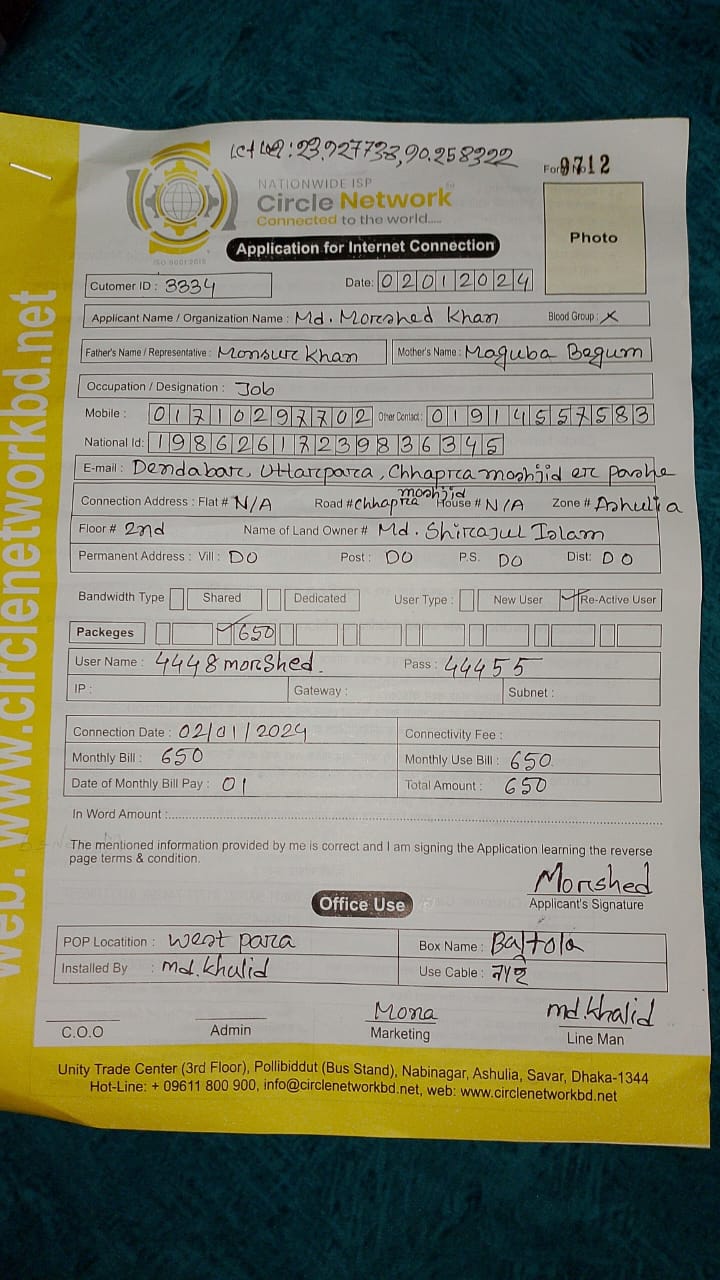 23.927733,90.258322
9712
NATIONWIDE ISP
Circle Network
Connected to the world.....
ISO 9001:2015
Application for Internet Connection
Photo
Cutomer ID : 3334
Date: 02012024
Applicant Name / Organization Name : Md. Morshed Khan Blood Group : X
Father's Name / Representative : Monsur Khan Mother's Name : Maguba Begum
Occupation / Designation : Job
Mobile : 01710297702 Other Contact : 01914557583
National Id: 19862617239836345
E-mail : Dendabar, Uttarpara, Chhapra moshjid er pashe
Connection Address : Flat # N/A Road # Chhapra moshjid House # N/A Zone # Ashulia
Floor # 2nd Name of Land Owner # Md. Shirajul Islam
Permanent Address : Vill : DO Post : DO P.S. DO Dist: DO
Bandwidth Type Shared Dedicated User Type : New User ✓ Re-Active User
Packeges ✓ 650
User Name : 4448morshed. Pass : 44455
IP : Gateway : Subnet :
Connection Date : 02/01/2024 Connectivity Fee :
Monthly Bill : 650 Monthly Use Bill : 650
Date of Monthly Bill Pay : 01 Total Amount : 650
In Word Amount :
The mentioned information provided by me is correct and I am signing the Application learning the reverse
page terms & condition.
Morshed
Applicant's Signature
Office Use
POP Locatition : West para Box Name : Bajtola
Installed By : md.khalid Use Cable : নাই
Mona md.khalid
C.O.O Admin Marketing Line Man
Unity Trade Center (3rd Floor), Pollibiddut (Bus Stand), Nabinagar, Ashulia, Savar, Dhaka-1344
Hot-Line: + 09611 800 900, info@circlenetworkbd.net, web: www.circlenetworkbd.net
web: www.circlenetworkbd.net